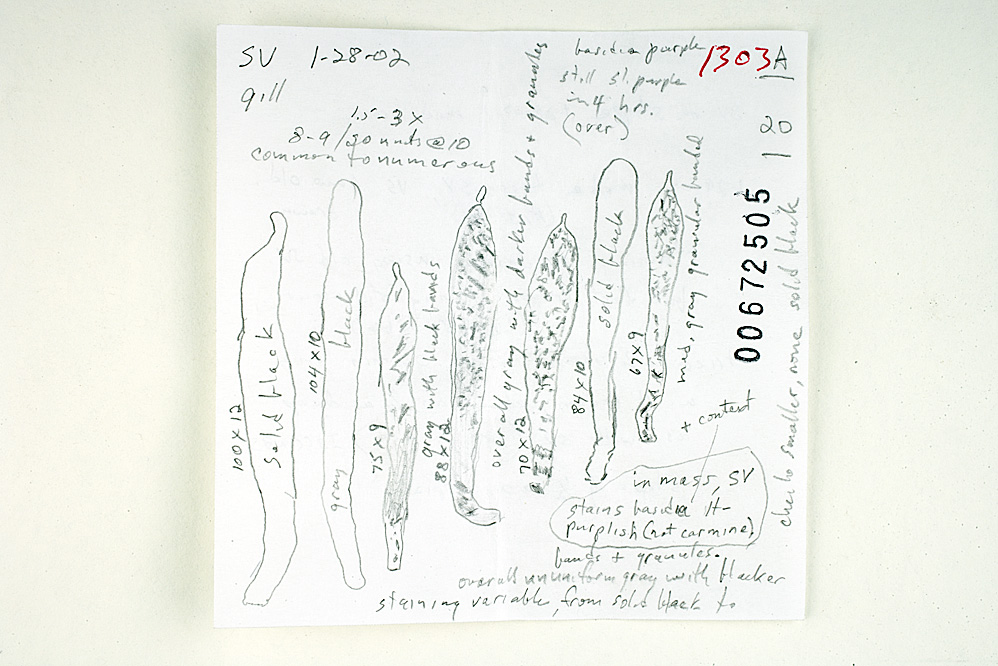 SV 1-28-02
gill
1.5-3X
8-9/30 units @ 10
common to numerous
basidia purple
still sl. purple
in 4 hrs.
(over)
1303 A
20
00672505
100 X 12
solid black
104 X 10
gray black
75 X 9
gray with black bands
88 X 12
overall gray with darker bands + granules
70 X 12
84 X 10
solid black
67 X 9
med. gray granular banded
cheilo smaller, none solid black
+ context
in mass, SV
stains basidia lt-
purplish (not carmine)
bands + granules.
overall ununiform gray with blacker
staining variable, from solid black to